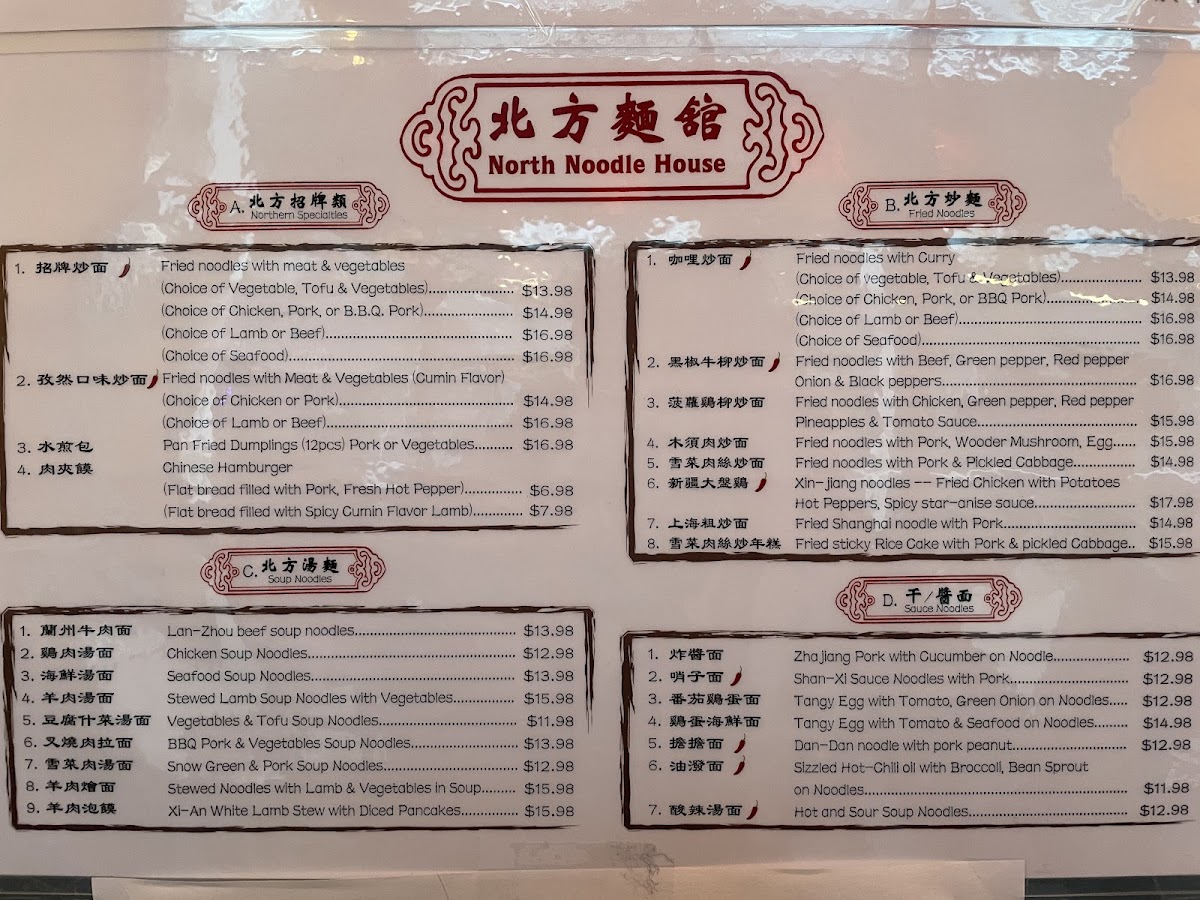 北方麵舘
North Noodle House
A. 北方招牌類
Northern Specialties
1. 招牌炒面 Fried noodles with meat & vegetables
(Choice of Vegetable, Tofu & Vegetables)..................... $13.98
(Choice of Chicken, Pork, or B.B.Q. Pork)..................... $14.98
(Choice of Lamb or Beef)..................... $16.98
(Choice of Seafood)..................... $16.98
2. 孜然口味炒面 Fried noodles with Meat & Vegetables (Cumin Flavor)
(Choice of Chicken or Pork)..................... $14.98
(Choice of Lamb or Beef)..................... $16.98
3. 水煎包 Pan Fried Dumplings (12pcs) Pork or Vegetables......... $16.98
4. 肉夾饃 Chinese Hamburger
(Flat bread filled with Pork, Fresh Hot Pepper).............. $6.98
(Flat bread filled with Spicy Cumin Flavor Lamb)............ $7.98
B. 北方炒麵
Fried Noodles
1. 咖哩炒面 Fried noodles with Curry
(Choice of vegetable, Tofu & Vegetables)..................... $13.98
(Choice of Chicken, Pork, or BBQ Pork)..................... $14.98
(Choice of Lamb or Beef)..................... $16.98
(Choice of Seafood)..................... $16.98
2. 黑椒牛柳炒面 Fried noodles with Beef, Green pepper, Red pepper
Onion & Black peppers..................... $16.98
3. 菠蘿鷄柳炒面 Fried noodles with Chicken, Green pepper, Red pepper
Pineapples & Tomato Sauce..................... $15.98
4. 木須肉炒面 Fried noodles with Pork, Wooder Mushroom, Egg...... $15.98
5. 雪菜肉絲炒面 Fried noodles with Pork & Pickled Cabbage.............. $14.98
6. 新疆大盤鷄 Xin-jiang noodles -- Fried Chicken with Potatoes
Hot Peppers, Spicy star-anise sauce..................... $17.98
7. 上海粗炒面 Fried Shanghai noodle with Pork..................... $14.98
8. 雪菜肉絲炒年糕 Fried sticky Rice Cake with Pork & pickled Cabbage.. $15.98
C. 北方湯麵
Soup Noodles
1. 蘭州牛肉面 Lan-Zhou beef soup noodles..................... $13.98
2. 鷄肉湯面 Chicken Soup Noodles..................... $12.98
3. 海鮮湯面 Seafood Soup Noodles..................... $13.98
4. 羊肉湯面 Stewed Lamb Soup Noodles with Vegetables.............. $15.98
5. 豆腐什菜湯面 Vegetables & Tofu Soup Noodles..................... $11.98
6. 叉燒肉拉面 BBQ Pork & Vegetables Soup Noodles..................... $13.98
7. 雪菜肉湯面 Snow Green & Pork Soup Noodles..................... $12.98
8. 羊肉燴面 Stewed Noodles with Lamb & Vegetables in Soup........ $15.98
9. 羊肉泡饃 Xi-An White Lamb Stew with Diced Pancakes.............. $15.98
D. 干/醬面
Sauce Noodles
1. 炸醬面 Zhajiang Pork with Cucumber on Noodle..................... $12.98
2. 哨子面 Shan-Xi Sauce Noodles with Pork..................... $12.98
3. 番茄鷄蛋面 Tangy Egg with Tomato, Green Onion on Noodles..... $12.98
4. 鷄蛋海鮮面 Tangy Egg with Tomato & Seafood on Noodles........ $14.98
5. 擔擔面 Dan-Dan noodle with pork peanut..................... $12.98
6. 油潑面 Sizzled Hot-Chili oil with Broccoli, Bean Sprout
on Noodles..................... $11.98
7. 酸辣湯面 Hot and Sour Soup Noodles..................... $12.98